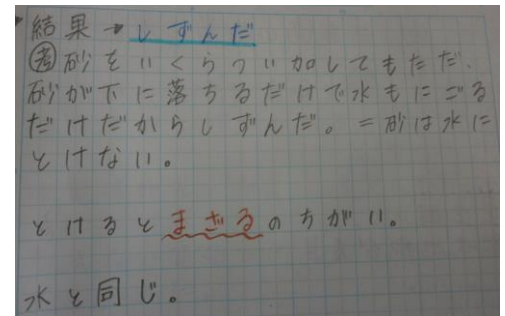 結果→しずんだ
考砂をいくらつい加してもただ、
砂が下に落ちるだけで水もにごる
だけだからしずんだ。=砂は水に
とけない。
とけるとまざるのちがい。
水と同じ。